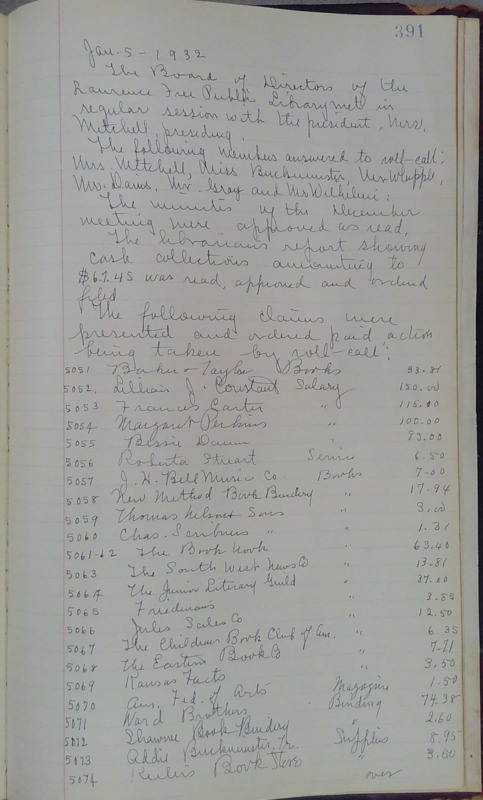 391
Jan-5-1932
The Board of Directors of the
Lawrence Free Public Library met in
regular session with the president, Mrs.
Mitchell, presiding.
The following members answered to roll-call:
Mrs. Mitchell, Miss Buckmaster, Mr. Whipple,
Mr. Gray and Mr. Wilhelmi:
The minutes of the December
meeting were approved as read.
The librarians report showing
cash collections amounting to
$67.45 was read, approved and ordered
filed.
The following claims were
presented and ordered paid action
being taken by roll-call:
5051 Baker & Taylor Books 93.81
5052. Lillian J. Constant Salary 150.00
5053 Frances Carter " 115.00
5054 Margaret Perkins " 100.00
5055 Bessie " 85.00
5056 Roberta Stuart Service 6.50
5057 J. W. Bell Music Co. Books 7.00
5058 New Method Book Bindery " 17.94
5059 Thomas Nelson & Sons " 3.00
5060 Chas. Scribners " " 1.31
5061-62 The Book Nook " 63.40
5063 The South West News Co " 13.81
5064 The Junior Literary Guild " 37.00
5065 Friedmans 3.85
5066 Jules Sales Co " 12.50
5067 The Childrens Book Club of Am. " 6.35
5068 The Eastern Book Co " 7.71
5069 Kansas Facts " 3.50
5070 Am. Fed. of Arts Magazine 1.50
5071 Ward Brothers Binding 74.38
5072 Shawnee Book Bindery " 2.60
5073 Addie Buckmaster, Tr. Supplies 8.95
5074 Keeler's Book Store " 3.80
over